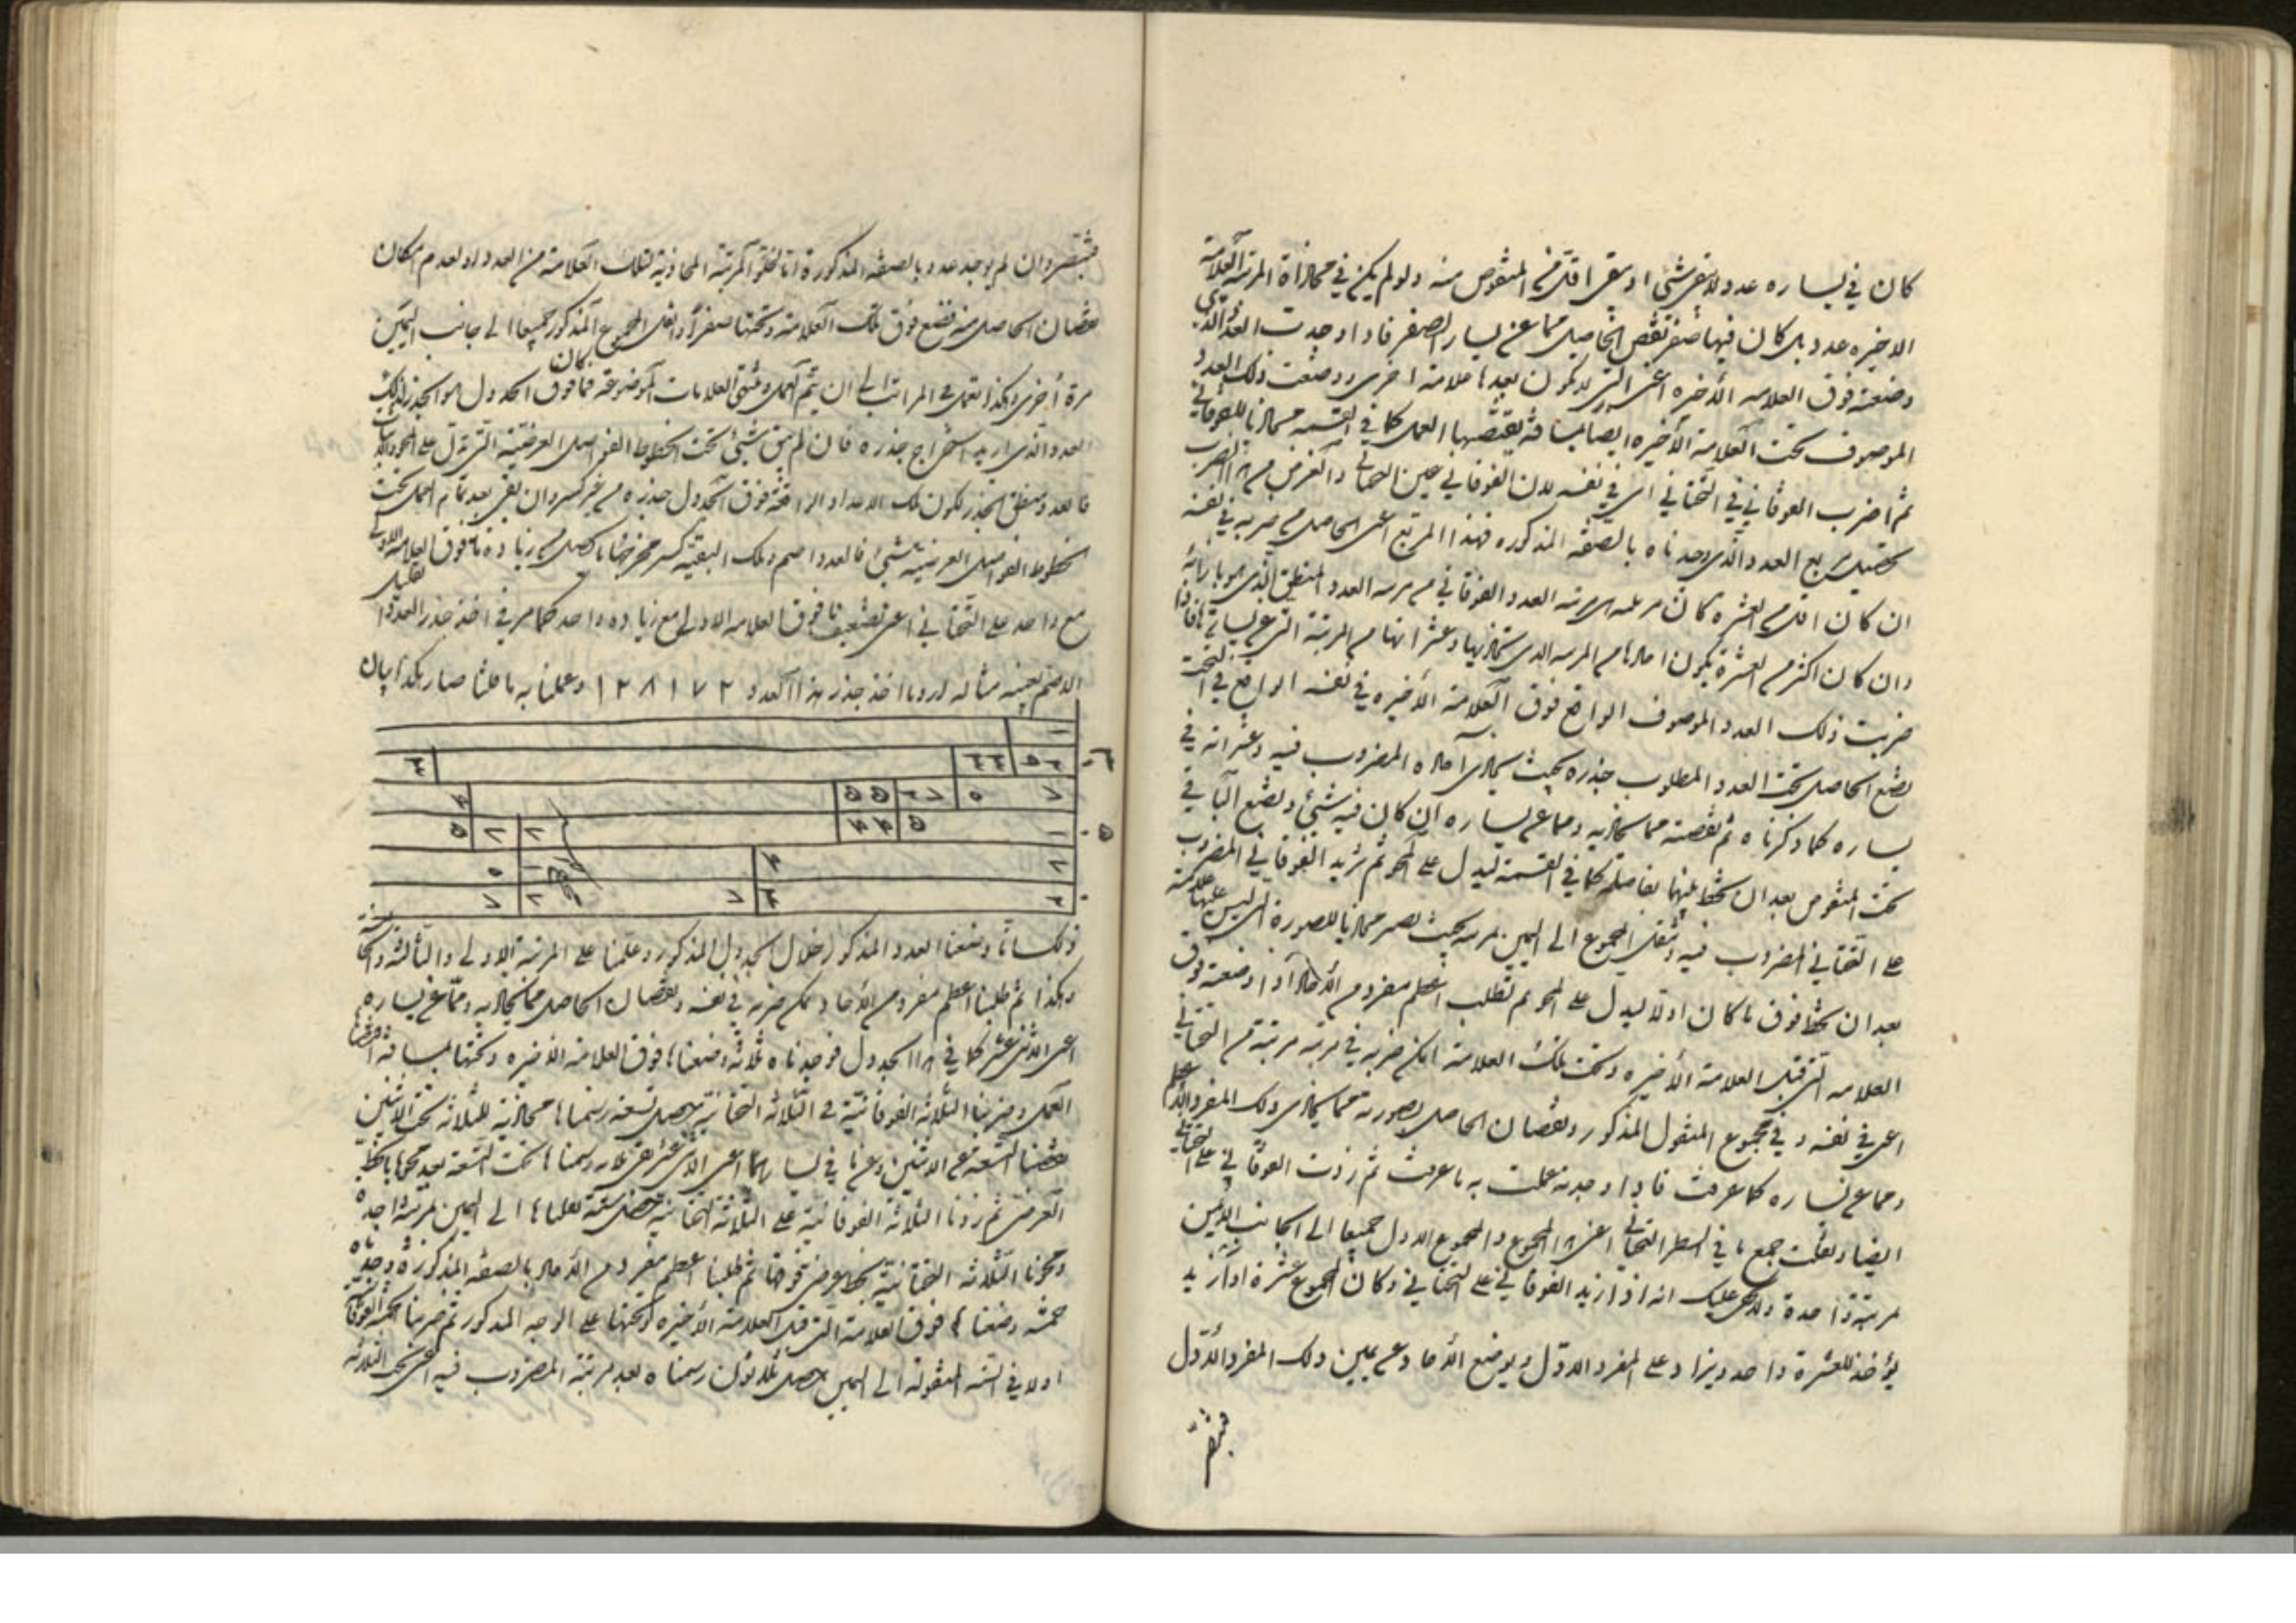 كان في يساره عدد ولا يبقى شئ او يبقى اقل من المنقوص منه ولو لم يكن في محاذاة المرتبة العلامة
الاخيره عدد بل كان فيها صفر نقص الحاصل مما عن يسار الصفر فاذا وجدت العدد الذي
وضعته فوق العلامه الأخيره اعنى التى لا يكون بعدها علامة اخرى ووضعت ذلك العدد
الموصوف تحت العلامة الأخيره ايضا بمسافة يقتضيها العمل كما في القسمه محاذيا للفوقاني
ثم اضرب الفوقاني في التحتاني اى في نفسه لان الفوقاني عين التحتاني والغرض من هذا الضرب
تحصيل مربع العدد الذي وجدناه بالصفه المذكوره فهذا المربع اعنى الحاصل من ضربه في نفسه
ان كان اقل من العشره كان مرتبته مرتبه العدد الفوقاني من مرتبه العدد المنطق الذي هو بازائه
وان كان اكثر من العشرة يكون احادها من المرتبه الذى تحاذيها وعشراتها من المرتبة التى عن يسارها فاذا
ضربت ذلك العدد الموصوف الواقع فوق العلامة الأخيره في نفسه الواقع في التحت
تضع الحاصل تحت العدد المطلوب جذره بحيث يحاذى آحاده المضروب فيه وعشراته في
يساره كما ذكرناه ثم نقصته مما يحاذيه ومما عن يساره ان كان فيه شئ وتضع الباقي
تحت المنقوص بعد ان تخط بينهما بفاصله كما في القسمة ليدل على المحو ثم تزيد الفوقاني المضروب
على التحتاني المضروب فيه وتنقل المجموع الى اليمين بمرتبه بحيث يصير محاذيا للصورة التى ليس عليها علامة
بعد ان تخط فوق ما كان اولا ليدل على المحو ثم تطلب اعظم مفرد من الآحاد اذا وضعته فوق
العلامه التى قبل العلامة الأخيره وتحت تلك العلامة امكن ضربه في مرتبه مرتبة من التحتاني
اعنى في نفسه وفي مجموع المنقول المذكور ونقصان الحاصل بصورته مما يحاذى ذلك المفرد
ومما عن يساره كما عرفت فاذا وجدته عملت به ما عرفت ثم زدت الفوقاني على التحتاني
ايضا ونقلت جمع ما في السطر التحتاني اعنى هذا المجموع والمجموع الاول جميعا الى الجانب اليمين
مرتبة واحدة ولا يخفى عليك انه اذا زيد الفوقاني على التحتاني وكان المجموع عشرة او ازيد
يؤخذ للعشرة واحد ويزاد على المفرد الاول ويوضع الأحاد عن يمين ذلك المفرد الأول
فيقتصر وان لم يوجد عدد بالصفه المذكورة اما لخلو المرتبة المحاذية لتلك العلامة من العدد او لعدم امكان
نقصان الحاصل منه فتضع فوق تلك العلامة وتحتها صفرا وانقل المجموع المذكور جميعا الى جانب اليمين
مرة أخرى وهكذا تعمل في المراتب الى ان يتم العمل في العلامات الموضوعة فما كان فوق الجدول هو الجذر لذلك
العدد الذى اريد استخراج جذره فان لم يبق شئ تحت الخطوط الفواصل العرضية التى تدل على المحو
فالعدد منطق الجذر لكون تلك الاعداد الواقعة فوق الجدول جذره من غير كسر وان بقى بعد تمام العمل تحت
الخطوط الفواصل العرضية شئ فالعدد اصم وتلك البقية كسر مخرجها ما يحصل من زيادة ما فوق العلامة الاولى
مع واحد على التحتاني اعنى تضعيف ما فوق العلامه الاولى مع زيادة واحد كما مر في اخذ جذر العدد القليل
الاصم بعينه مثاله اردنا اخذ جذر هذا العدد ١٢٨١٧٢ وعملنا به ما قلنا صار هكذا بيان
ذلك انا وضعنا العدد المذكور خلال الجدول المذكور وعلمنا على المرتبة الاولى والثالثة والخامسة
وهكذا ثم طلبنا اعظم مفرد من الأحاد يمكن ضربه في نفسه ونقصان الحاصل مما يحاذيه ومما عن يساره
اعنى الاثنى عشر كما في هذا الجدول فوجدناه ثلاثه وضعناها فوق العلامة الأخيره وتحتها بمسافة
العمل وضربنا الثلاثه الفوقانية في الثلاثه التحتانية حصل تسعة رسمناها محاذية للثلاثة تحت الاثنين
نقصنا التسعة من الاثنين وعما في يسارهما اعنى الاثنى عشر بقى ثلاثه رسمناها تحت التسعة بعد محوها بالخط
العرضى ثم زدنا الثلاثة الفوقانية على الثلاثة التحتانيه حصل ستة نقلناها الى اليمين بمرتبة واحدة
ومحونا الثلاثه التحتانية بخط عرضى فوقها ثم طلبنا اعظم مفرد من الأحاد بالصفه المذكورة وجدناه
خمسه وضعناها فوق العلامة التى قبل العلامة الأخيره وتحتها على الوجه المذكور ثم ضربنا الخمسه الفوقانية
اولا في الستة المنقولة الى اليمين حصل ثلاثون رسمناه بعد مرتبة المضروب فيه اعنى تحت الثلاثه